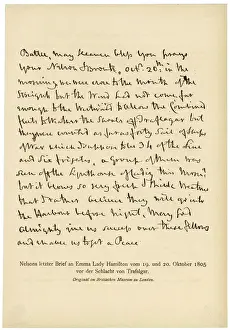 Battle, may Heaven bless you prays
your Nelson & Bronte, Octr. 20th in the
morning we were close to the Mouth of the
Streights but the Wind had not come far
enough to the Westward to allow the Combined
Fleets to Weather the Shoals off Traflagar but
they were counted as far as forty Sail of Ships
of War which I suppose to be 34 of the Line
and Six frigates, a group of them was
seen off the Lighthouse of Cadiz this Morng
but it blows so very fresh & thick weather
that I rather believe they will go into
the Harbour before night, May God
Almighty give us success over these fellows
and enable us to get a Peace
Nelsons letzter Brief an Emma Lady Hamilton vom 19. und 20. Oktober 1805
vor der Schlacht von Trafalgar.
Original im Britischen Museum zu London.